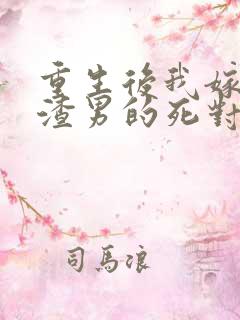 重生後我嫁
渣男的死對
司馬浪